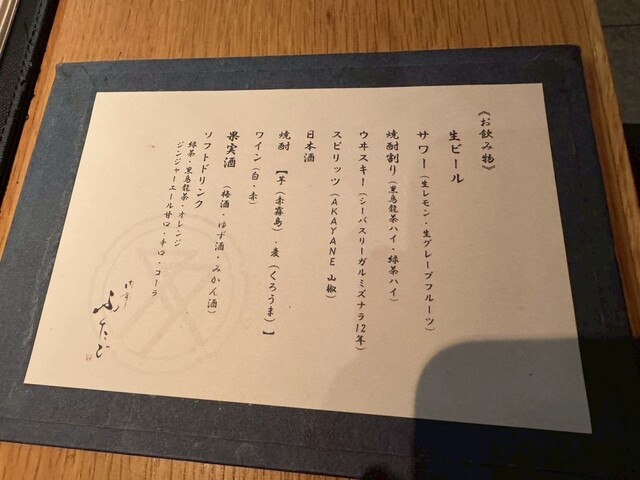 《お飲み物》
生ビール
サワー（生レモン・生グレープフルーツ）
焼酎割り（黒烏龍茶ハイ・緑茶ハイ）
ウヰスキー（シーバスリーガルミズナラ12年）
スピリッツ（AKAYANE 山椒）
日本酒
焼酎【芋（赤霧島）・麦（くろうま）】
ワイン（白・赤）
果実酒（梅酒・ゆず酒・みかん酒）
ソフトドリンク
緑茶・黒烏龍茶・オレンジ
ジンジャーエール甘口・辛口・コーラ
ふたび